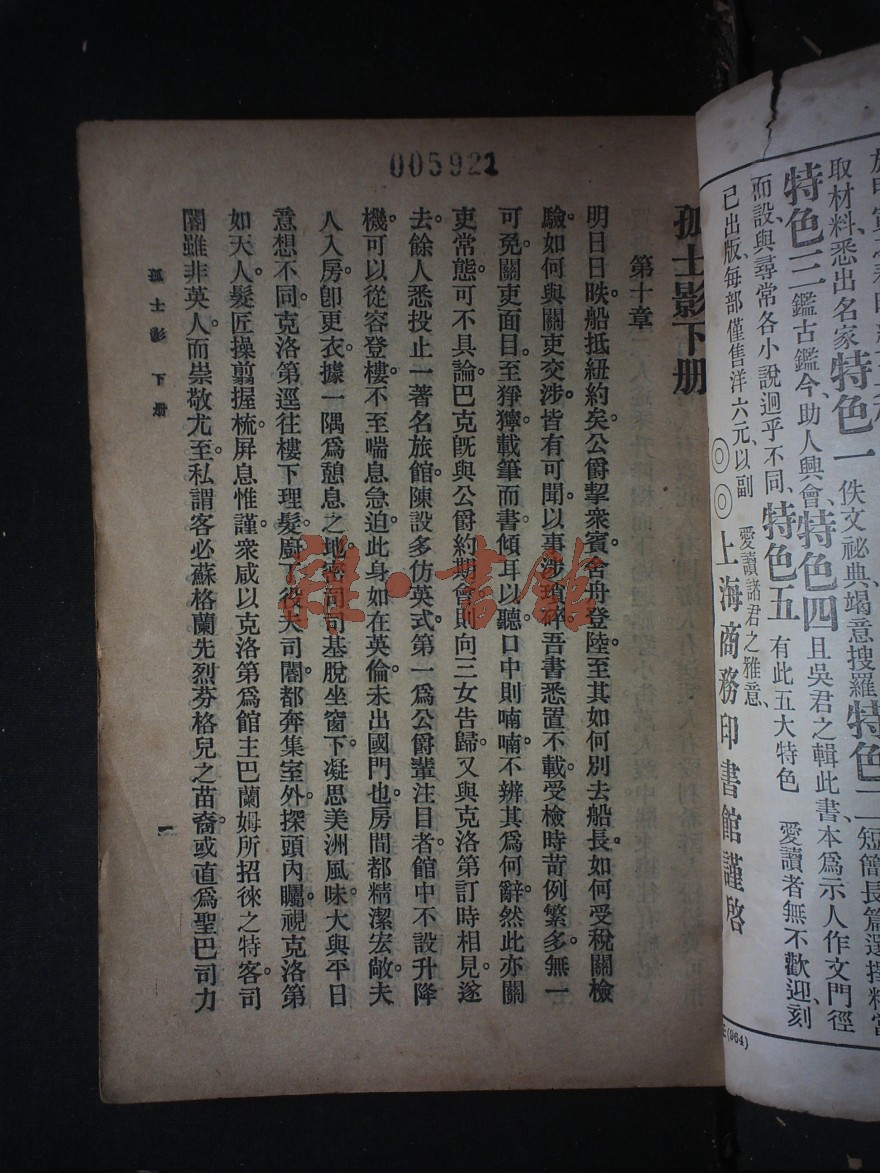 於
取材料、悉出名家、特色一 佚文祕典、竭意搜羅、特色二 短簡長篇、選擇精當
特色三 鑑古鑑今、助人興會、特色四 且吳君之輯此書、本爲示人作文門徑
而設、與尋常各小說迥乎不同、特色五 有此五大特色 愛讀者無不歡迎、刻
已出版、每部僅售洋六元、以副 愛讀諸君之雅意、
◎◎上海商務印書館謹啓
(964)
005921
孤士影下册
第十章
明日日昳船抵紐約矣公爵挈衆賓舍舟登陸至其如何別去船長如何受稅關檢
驗如何與關吏交涉皆有可聞以事涉瑣碎吾書悉置不載受檢時苛例繁多無一
可免關吏面目至猙獰載筆而書傾耳以聽口中則喃喃不辨其爲何辭然此亦關
吏常態可不具論巴克旣與公爵約期會則向三女告歸又與克洛第訂時相見遂
去餘人悉投止一著名旅館陳設多仿英式第一爲公爵輩注目者館中不設升降
機可以從容登樓不至喘息急迫此身如在英倫未出國門也房間都精潔宏敞夫
人入房卽更衣據一隅爲憩息之地密司司基脫坐窗下凝思美洲風味大與平日
意想不同克洛第逕往樓下理髮廚丁役夫司閽都奔集室外探頭內矚視克洛第
如天人髮匠操翦握梳屏息惟謹衆咸以克洛第爲館主巴蘭姆所招徠之特客司
閽雖非英人而崇敬尤至私謂客必蘇格蘭先烈芬格兒之苗裔或直爲聖巴司力
孤士影 下册
一
雜·書館